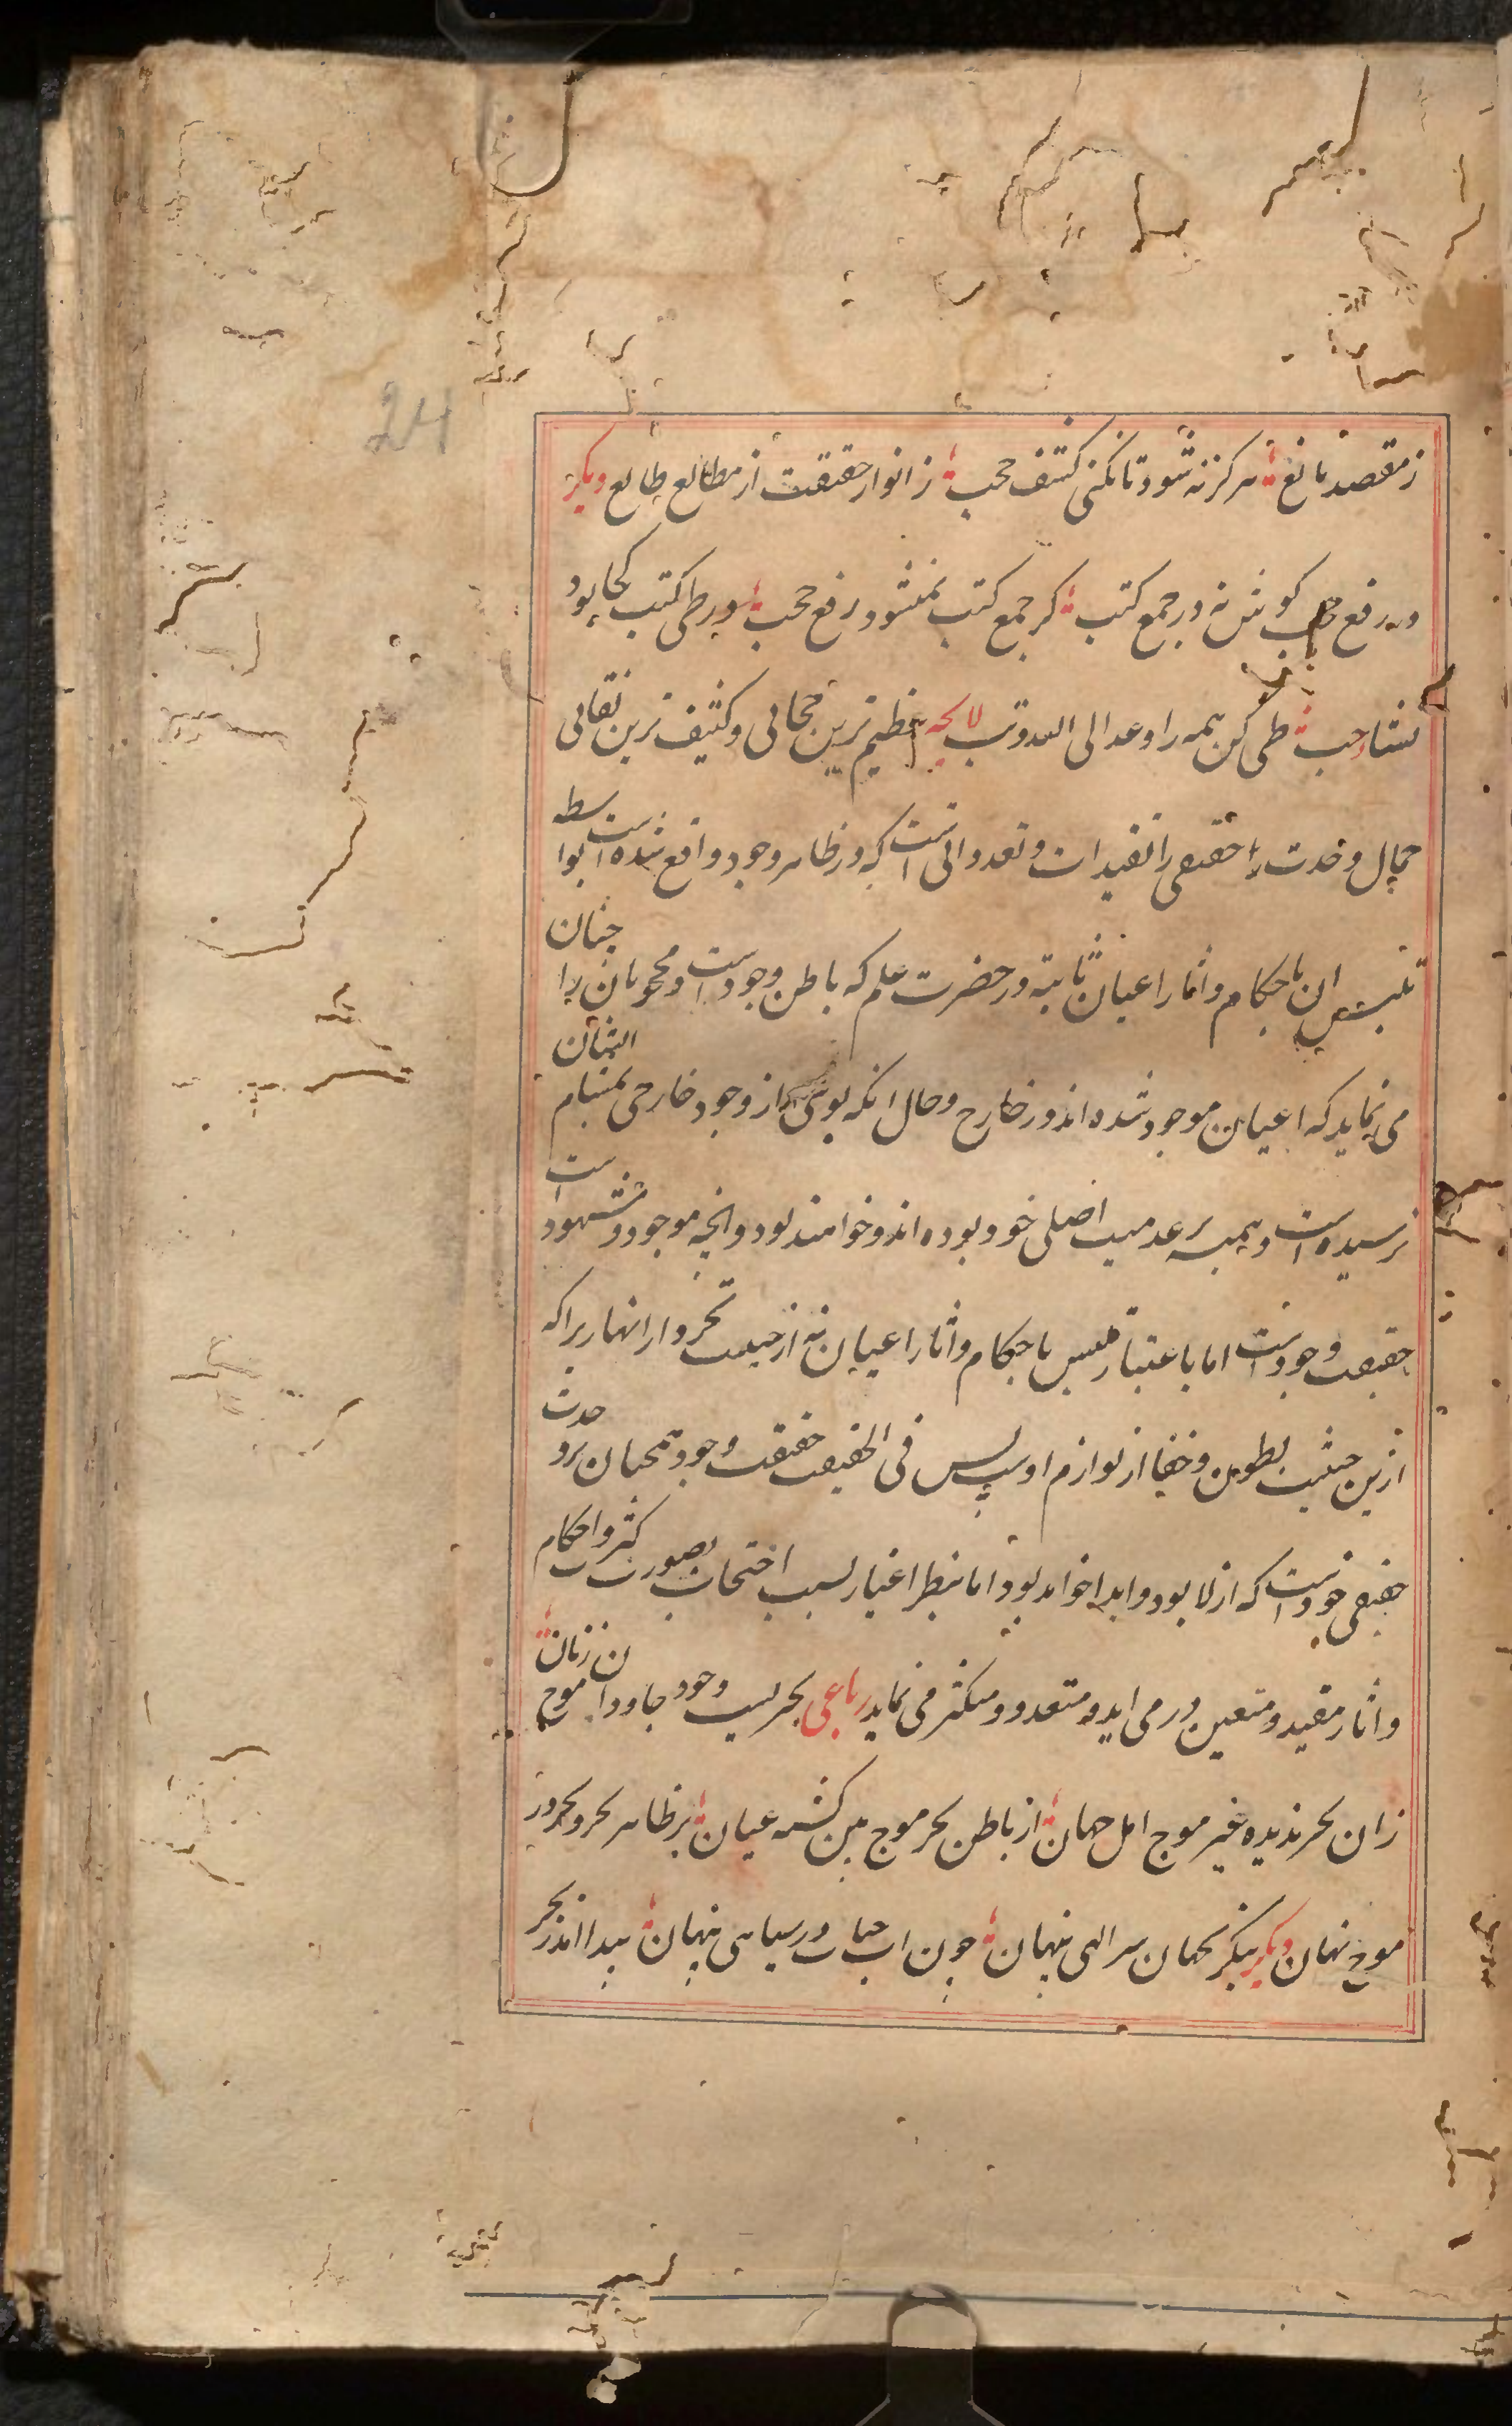 24
ز مقصد مانع هرگز نشود تا نکنی کشف حجب ز انوار حقیقت از مطالع طالع دیگر
در رفع حجب کوش نه در جمع کتب کز جمع کتب نمیشود رفع حجب در طی کتب کجا بود
نشا حب طی کن همه را وعد الی الله وتب لایحه عظیم ترین حجابی و کثیف ترین نقابی
جمال وحدت حقیقی را تقیدات و تعدداتی است که در ظاهر وجود واقع شده است بواسطه
تلبس ان باحکام و اثار اعیان ثابته در حضرت علم که باطن وجود است و محجوبان را چنان
می نماید که اعیان موجود شده اند در خارج و حال انکه بوئی از وجود خارجی بمشام ایشان
نرسیده است و همیشه بر عدمیت اصلی خود بوده اند و خواهند بود و انچه موجود و مشهود است
حقیقت وجود است اما باعتبار تلبس باحکام و اثار اعیان نه از حیثیت تجرد از انها زیرا که
ازین حیثیت بطون و خفا از لوازم اوست پس فی الحقیقت حقیقت وجود همچنان بر وحدت
حقیقی خود است که ازلا بود و ابدا خواهد بود اما بنظر اغیار بسبب احتجاب بصورت کثرت احکام
و اثار مقید و متعین در می اید و متعدد و متکثر می نماید رباعی بحریست وجود جاودان موج زنان
زان بحر ندیده غیر موج اهل جهان از باطن بحر موج بین گشته عیان بر ظاهر بحر و بحر در
موج نهان دیگر بنگر بجهان سر الهی پنهان چون اب حیات در سیاهی پنهان پیدا امد ز بحر